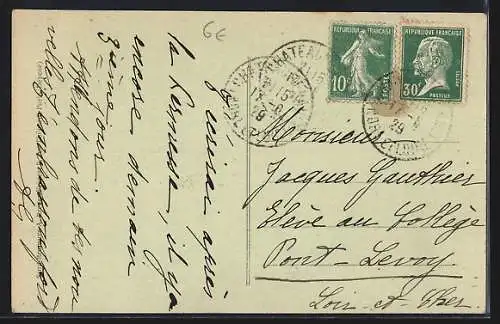 6€
RÉPUBLIQUE FRANÇAISE
10c
POSTES
REPUBLIQUE FRANÇAISE
30c
POSTES
CHATEAU
29
J'écrirai après
la Kermesse, il y a
encore demain
3ème jour.
Attendons de tes nou
velles
Monsieur
Jacques Gauthier
Elève au Collège
Pont-Levoy
Loir-et-Cher